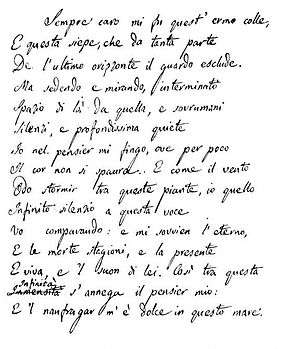 Sempre caro mi fu quest' ermo colle,
E questa siepe, che da tanta parte
De l'ultimo orizzonte il guardo esclude.
Ma sedendo e mirando, interminato
Spazio di là da quella, e sovrumani
Silenzi, e profondissima quiete
Io nel pensier mi fingo, ove per poco
Il cor non si spaura. E come il vento
Odo stormir tra queste piante, io quello
Infinito silenzio a questa voce
Vo comparando: e mi sovvien l'eterno,
E le morte stagioni, e la presente
E viva, e 'l suon di lei. Così tra questa
Infinità
Immensità s'annega il pensier mio:
E 'l naufragar m' è dolce in questo mare.